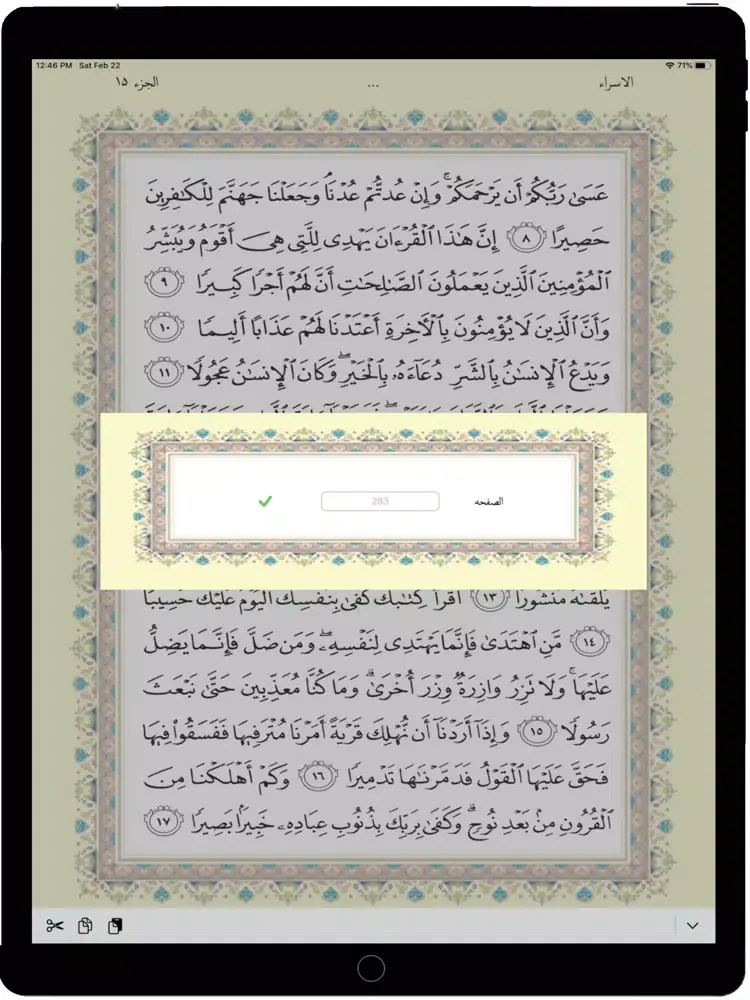 12:46 PM Sat Feb 22
71%
الاسراء ... الجزء ١٥
عَسَىٰ رَبُّكُمْ أَن يَرْحَمَكُمْ ۚ وَإِنْ عُدتُّمْ عُدْنَا ۘ وَجَعَلْنَا جَهَنَّمَ لِلْكَٰفِرِينَ
حَصِيرًا ٨ إِنَّ هَٰذَا ٱلْقُرْءَانَ يَهْدِى لِلَّتِى هِىَ أَقْوَمُ وَيُبَشِّرُ
ٱلْمُؤْمِنِينَ ٱلَّذِينَ يَعْمَلُونَ ٱلصَّٰلِحَٰتِ أَنَّ لَهُمْ أَجْرًا كَبِيرًا ٩
وَأَنَّ ٱلَّذِينَ لَا يُؤْمِنُونَ بِٱلْءَاخِرَةِ أَعْتَدْنَا لَهُمْ عَذَابًا أَلِيمًا ١٠
وَيَدْعُ ٱلْإِنسَٰنُ بِٱلشَّرِّ دُعَآءَهُۥ بِٱلْخَيْرِ ۖ وَكَانَ ٱلْإِنسَٰنُ عَجُولًا ١١
الصفحه 283
يَلْقَىٰهُ مَنشُورًا ١٣ ٱقْرَأْ كِتَٰبَكَ كَفَىٰ بِنَفْسِكَ ٱلْيَوْمَ عَلَيْكَ حَسِيبًا
١٤ مَّنِ ٱهْتَدَىٰ فَإِنَّمَا يَهْتَدِى لِنَفْسِهِۦ ۖ وَمَن ضَلَّ فَإِنَّمَا يَضِلُّ
عَلَيْهَا ۚ وَلَا تَزِرُ وَازِرَةٌ وِزْرَ أُخْرَىٰ ۗ وَمَا كُنَّا مُعَذِّبِينَ حَتَّىٰ نَبْعَثَ
رَسُولًا ١٥ وَإِذَآ أَرَدْنَآ أَن نُّهْلِكَ قَرْيَةً أَمَرْنَا مُتْرَفِيهَا فَفَسَقُوا۟ فِيهَا
فَحَقَّ عَلَيْهَا ٱلْقَوْلُ فَدَمَّرْنَٰهَا تَدْمِيرًا ١٦ وَكَمْ أَهْلَكْنَا مِنَ
ٱلْقُرُونِ مِنۢ بَعْدِ نُوحٍ ۗ وَكَفَىٰ بِرَبِّكَ بِذُنُوبِ عِبَادِهِۦ خَبِيرًۢا بَصِيرًا ١٧